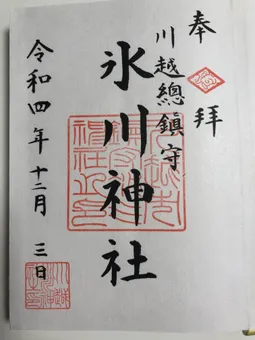 奉拝
川越總鎮守
氷川神社
令和四年十二月三日